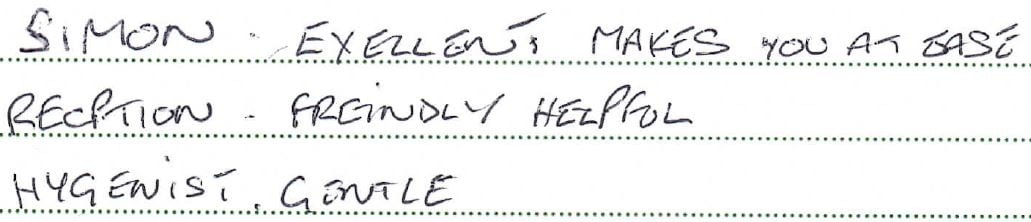 SIMON - EXELLENT, MAKES YOU AT EASE
RECPTION - FREINDLY HELPFUL
HYGENIST. GENTLE